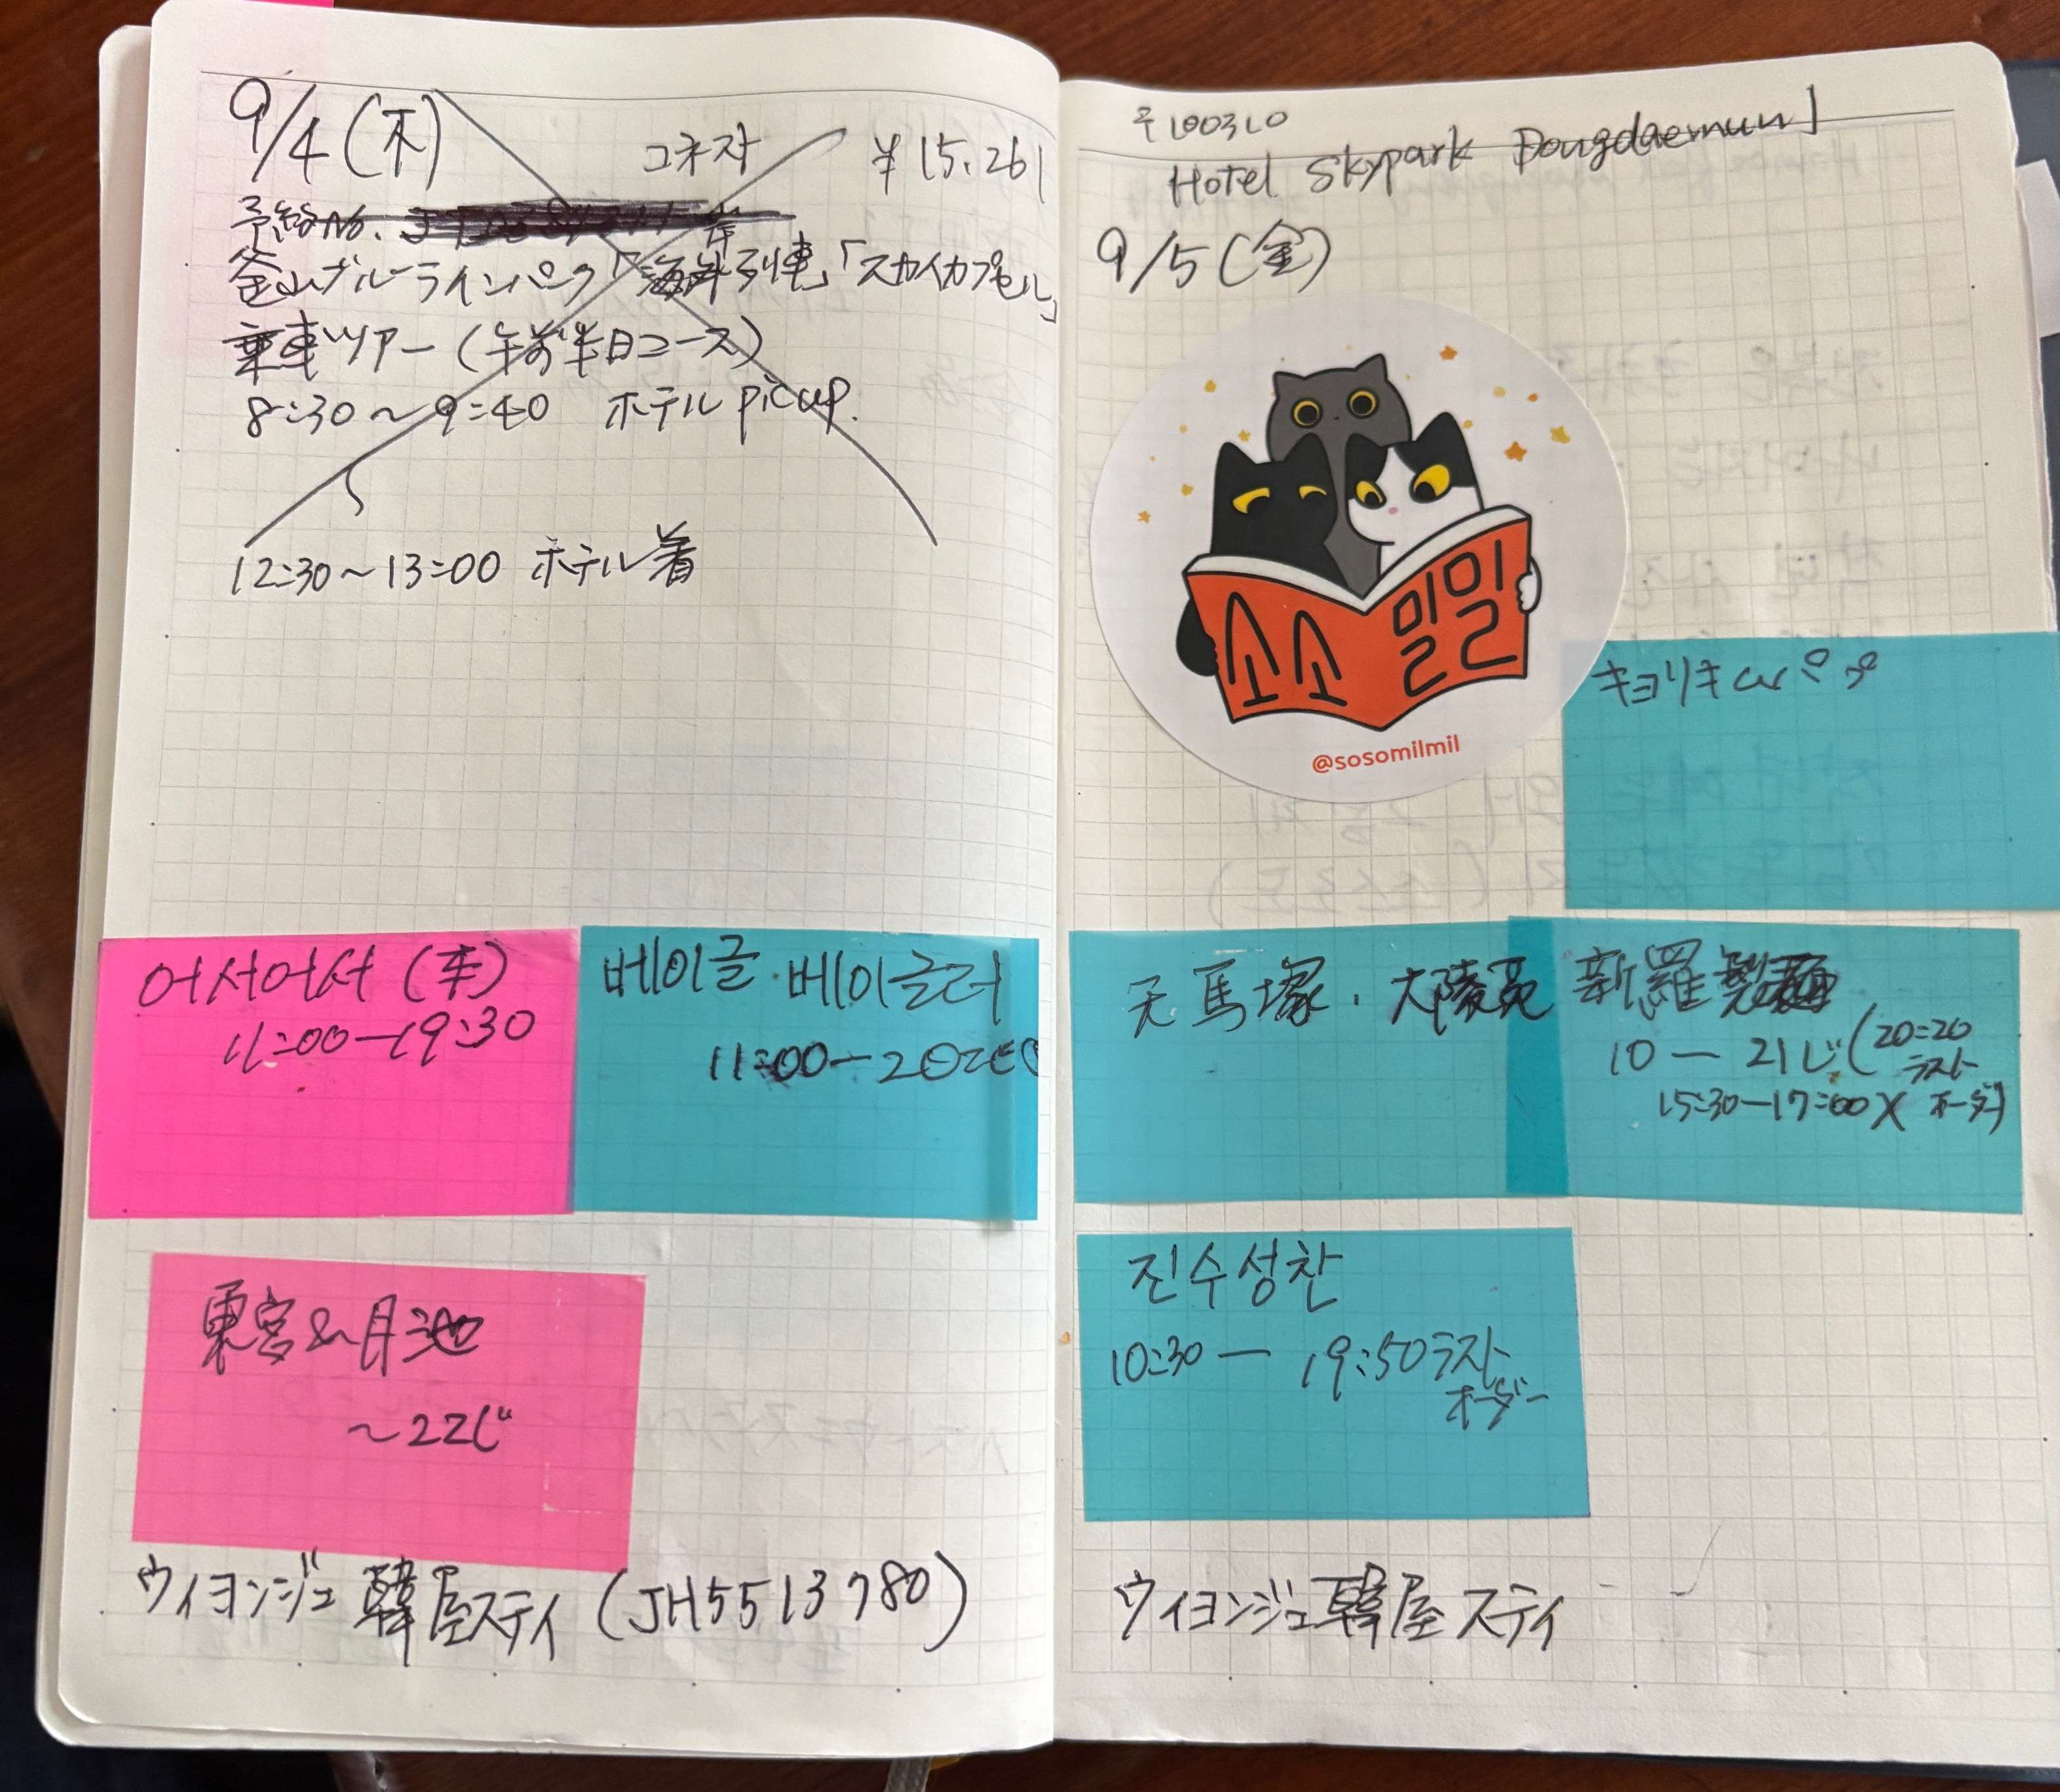 9/4(木)
コネスト ¥15,261
予約No.
釜山ブルーラインパーク「海岸列車」「スカイカプセル」
乗車ツアー(午前半日コース)
8:30～9:40 ホテル picup.
12:30～13:00 ホテル着
어서어서 (本)
11:00-19:30
베이글·베이글러
11:00-20:00
東宮&月池
～22じ
ウィヨンジェ韓屋ステイ (JH5513780)
Hotel Skypark Dongdaemun 1
9/5(金)
소소밀밀
@sosomilmil
キョリキムパプ
天馬塚・大陵苑
新羅製麺
10-21じ(20:20
ラスト
15:30-17:00 X オーダー)
진수성찬
10:30- 19:50ラスト
オーダー
ウィヨンジェ韓屋ステイ